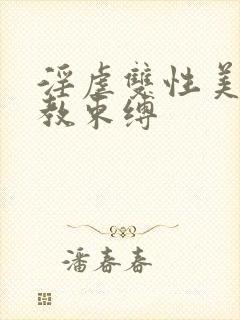 淫虐雙性美
教束縛
潘春春